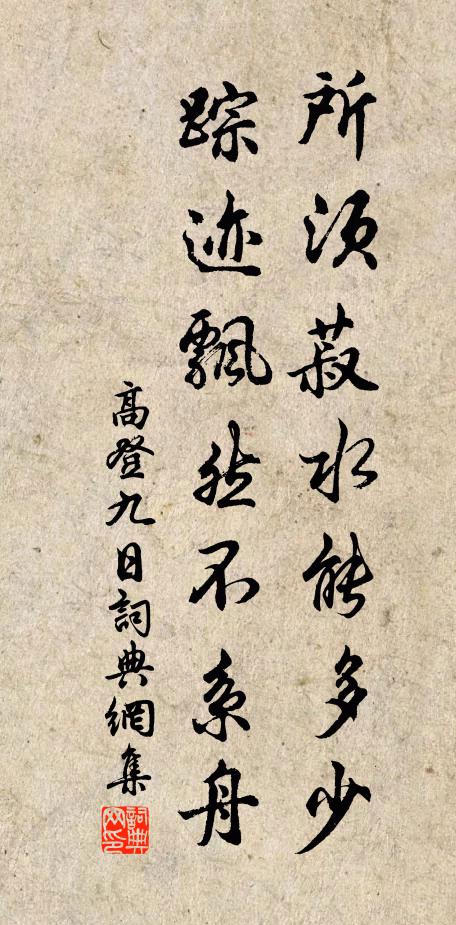 所须菽水能多少
踪迹飘然不系舟
高登九日詞典網集
詞典網印